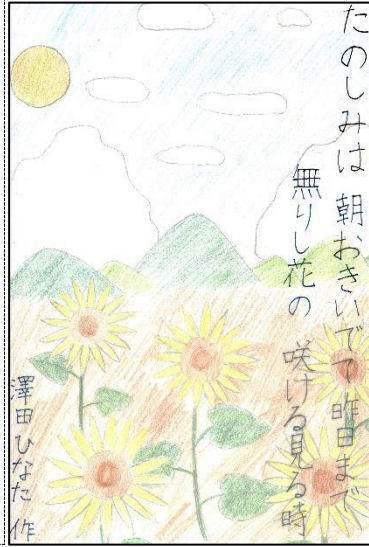 たのしみは 朝おきいでて昨日まで
無りし花の 咲ける見る時
澤田ひなた 作